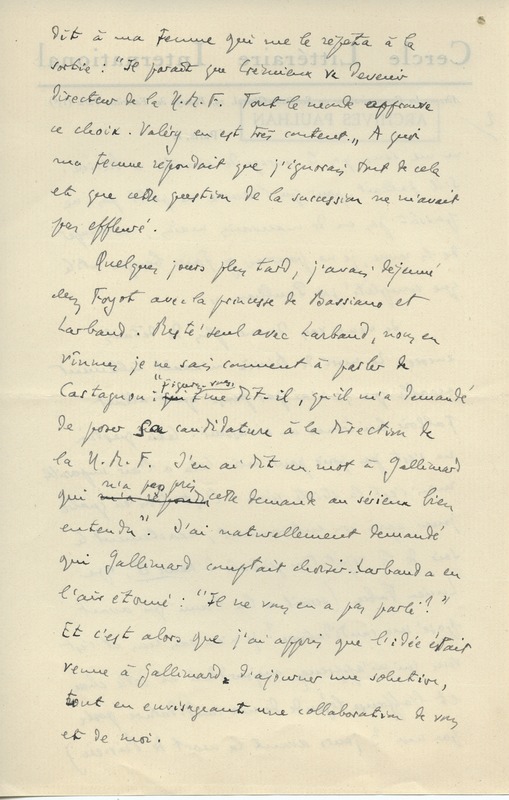 dit à ma femme qui me le répéta à la
sortie : "Il paraît que Crémieux va devenir
directeur de la N.R.F. Tout le monde approuve
ce choix. Valéry en est très content." A quoi
ma femme répondait que j'ignorais tout de cela
et que cette question de la succession ne m'avait
pas effleuré.
Quelques jours plus tard, j'avais déjeuné
chez Foyot avec la princesse de Bassiano et
Larbaud. Resté seul avec Larbaud, nous en
vînmes je ne sais comment à parler de
Castagnou : "figurez-vous, me dit-il, qu'il m'a demandé
de poser sa candidature à la direction de
la N.R.F. J'en ai dit un mot à Gallimard
qui n'a pas pris cette demande au sérieux bien
entendu". J'ai naturellement demandé
qui Gallimard comptait choisir. Larbaud a eu
l'air étonné : "Il ne vous en a pas parlé ?"
Et c'est alors que j'ai appris que l'idée était
venue à Gallimard, d'ajourner une solution,
tout en envisageant une collaboration de vous
et de moi.
Cercle Littéraire International
ARCHIVES PAULHAN